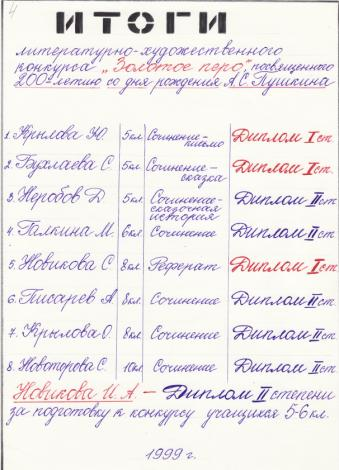 4
ИТОГИ
литературно-художественного
конкурса „Золотое перо", посвященного
200-летию со дня рождения А.С. Пушкина
1. Крылова Ю. 5кл Сочинение-письмо Диплом I ст.
2. Бухлаева С. 5кл Сочинение-сказка Диплом I ст.
3. Неробов Д 5кл Сочинение-сказочная история Диплом II ст
4. Галкина М. 6кл Сочинение Диплом II ст
5. Новикова С. 8кл Реферат Диплом I ст.
6. Писарев А 8кл Сочинение Диплом II ст
7. Крылова О. 8кл Сочинение Диплом II ст.
8. Новоторова С. 10кл Сочинение Диплом II ст.
Новикова И.А. – Диплом II степени
за подготовку к конкурсу учащихся 5-6 кл.
1999 г.